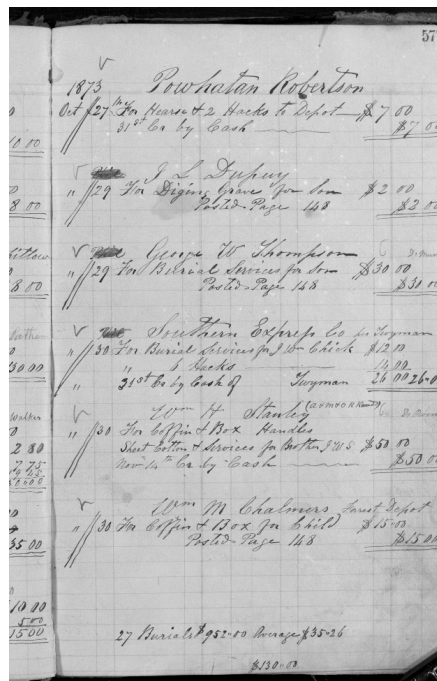 57
1873 Powhatan Robertson
Oct 27th For Hearse & 2 Hacks to Depot $7 00
31st Cr by Cash $7 00
J L Dupuy
" 29 For Diging Grave for Son $2 00
Posted Page 148 $2 00
George W Thompson
" 29 For Burial Services for Son $30 00
Posted Page 148 $30 00
Southern Express Co for Twyman
" 30 For Burial Services for J W Chick $12 00
" 6 Hacks 14 00
31st Cr by Cash of Twyman 26 00 26 00
Wm H Stanley
" 30 For Coffin & Box Handles
Sheet Cotton & Services for Brother J W S $50 00
Nov 14th Cr by Cash $50 00
Wm M Chalmers Forest Depot
" 30 For Coffin & Box for Child $15 00
Posted Page 148 $15 00
27 Burials $952.00 Average $35.26
$130.00